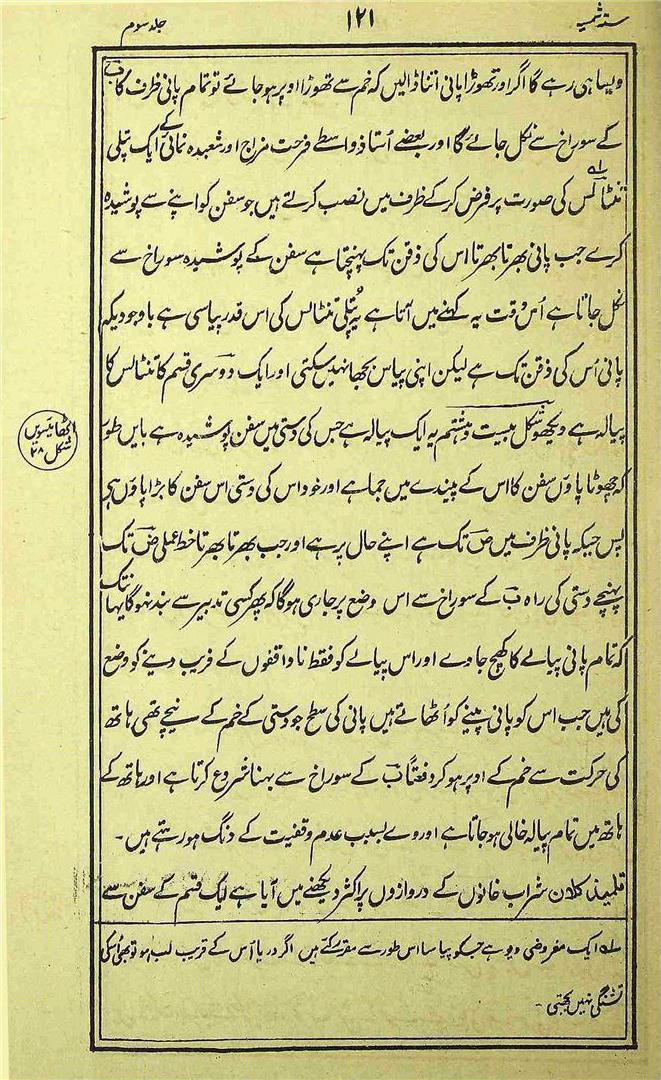 ستہ شمسیہ ۱۲۱ جلد سوم
ویسا ہی رہے گا اگر اور تھوڑا پانی اتنا ڈالیں کہ خم سے تھوڑا اوپر ہو جائے تو تمام پانی ظرف کا ب
کے سوراخ سے نکل جائے گا اور بعضے اُستاذ واسطے فرحت مزاج اور شعبدہ نمائی کے ایک پتلی
تنٹالس کی صورت پر فرض کر کے ظرف میں نصب کرتے ہیں جو سفن کو اپنے سے پوشیدہ
کرے جب پانی بھرتا بھرتا اس کی ذقن تک پہنچتا ہے سفن کے پوشیدہ سوراخ سے
نکل جاتا ہے اُس وقت یہ کہنے میں آتا ہے یہ پُتلی تنٹالس کی اس قدر پیاسی ہے باوجودیکہ
پانی اُس کی ذقن تک ہے لیکن اپنی پیاس بجھا نہیں سکتی اور ایک دوسری قسم کا تنٹالس کا
پیالہ ہے دیکھو شکل بیست و ہشتم یہ ایک پیالہ ہے جس کی دستی میں سفن پوشیدہ ہے بایں طور
اٹھائیسویں
شکل ۲۸
کہ چھوٹا پاؤں سفن کا اس کے پیندے میں جما ہے اور خود اس کی دستی اس سفن کا بڑا پاؤں ہی
پس جبکہ پانی ظرف میں ص تک ہے اپنے حال پر ہے اور جب بھرتا بھرتا خط عملی ض تک
پہنچے دستی کی راہ ب کے سوراخ سے اس وضع پر جاری ہوگا کہ پھر کسی تدبیر سے بند نہوگا یہانتک
کہ تمام پانی پیالے کا کھچ جاوے اور اس پیالے کو فقط ناواقفوں کے فریب دینے کو وضع
کی ہیں جب اس کو پانی پینے کو اُٹھاتے ہیں پانی کی سطح جو دستی کے خم کے نیچے تھی ہاتھ
کی حرکت سے خم کے اوپر ہو کر دفعتاً ب کے سوراخ سے بہنا شروع کرتا ہے اور ہاتھ کے
ہاتھ میں تمام پیالہ خالی ہو جاتا ہے اور وے بسبب عدم وقفیت کے دنگ ہو رہتے ہیں ۔
تلمیذ کلان شراب خانوں کے دروازوں پر اکثر دیکھنے میں آیا ہے ایک قسم کے سفن سے
لہ ایک مفروضی دیو ہے جسکو پیاسا اس طور سے مقرر کئے ہیں اگر دریا اُس کے قریب لب ہو تو بھی اُسکی
تشنگی نہیں بجھتی ۔